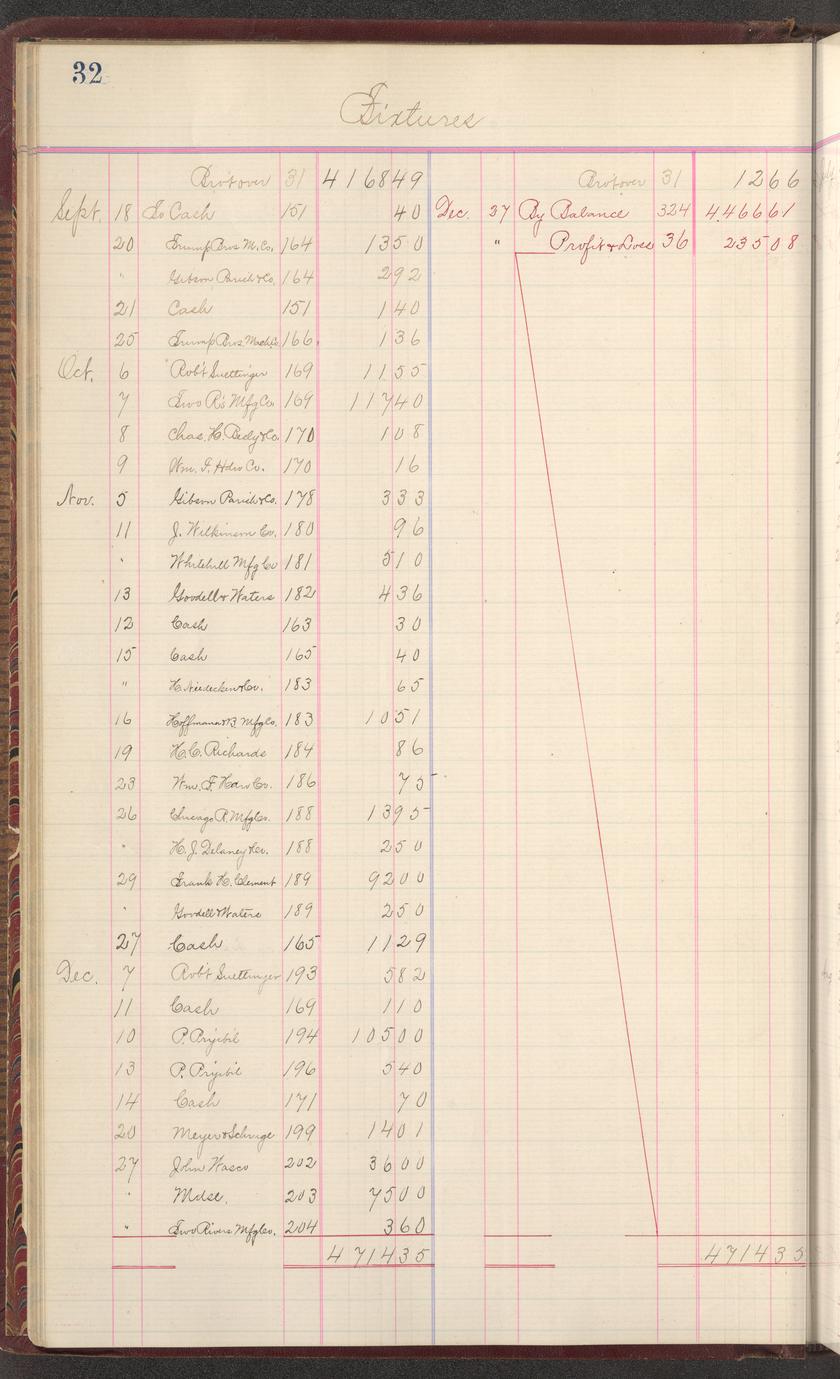 32
Fixtures
Brot over 31 416849 Brot over 31 1266
Sept. 18 To Cash 151 40 Dec. 37 By Balance 324 446661
20 Trump Bros M. Co. 164 1350 " Profit & Loss 36 23508
" Gibson Parish & Co. 164 292
21 Cash 151 140
25 Trump Bros Mach Co 166 136
Oct. 6 Rob't Suettinger 169 1155
7 Two R's Mfg Co. 169 11740
8 Chas. H. Besly & Co. 170 108
9 Wm. F. Hdw Co. 170 16
Nov. 5 Gibson Parish & Co. 178 333
11 J. Wilkinson Co. 180 96
" Whitehill Mfg Co 181 510
13 Goodell & Waters 182 436
12 Cash 163 30
15 Cash 165 40
" H. Niedecken & Co. 183 65
16 Hoffmann & B. Mfg Co. 183 1051
19 H. C. Richards 184 86
23 Wm. F. Hdw Co. 186 75
26 Chicago R. Mfg Co. 188 1395
" H. J. Delaney & Co. 188 250
29 Frank H. Clement 189 9200
" Goodell & Waters 189 250
27 Cash 165 1129
Dec. 7 Rob't Suettinger 193 582
11 Cash 169 110
10 P. Pryibil 194 10500
13 P. Pryibil 196 540
14 Cash 171 70
20 Meyer & 199 1401
27 John Wasco 202 3600
" Mdse. 203 7500
" Two Rivers Mfg Co. 204 360
471435 471435